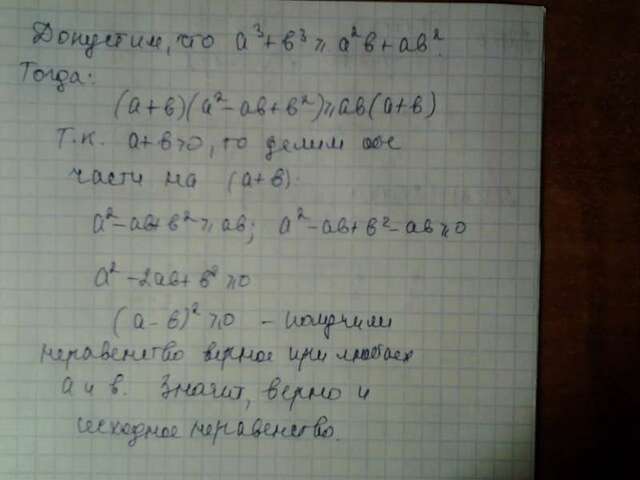 Допустим, что a³+b³ ⩾ a²b+ab².
Тогда:
(a+b)(a²-ab+b²)⩾ab(a+b)
Т.к. a+b>0, то делим обе
части на (a+b).
a²-ab+b²⩾ab; a²-ab+b²-ab⩾0
a²-2ab+b²⩾0
(a-b)²⩾0 - получили
неравенство верное при любых
a и b. Значит, верно и
исходное неравенство.